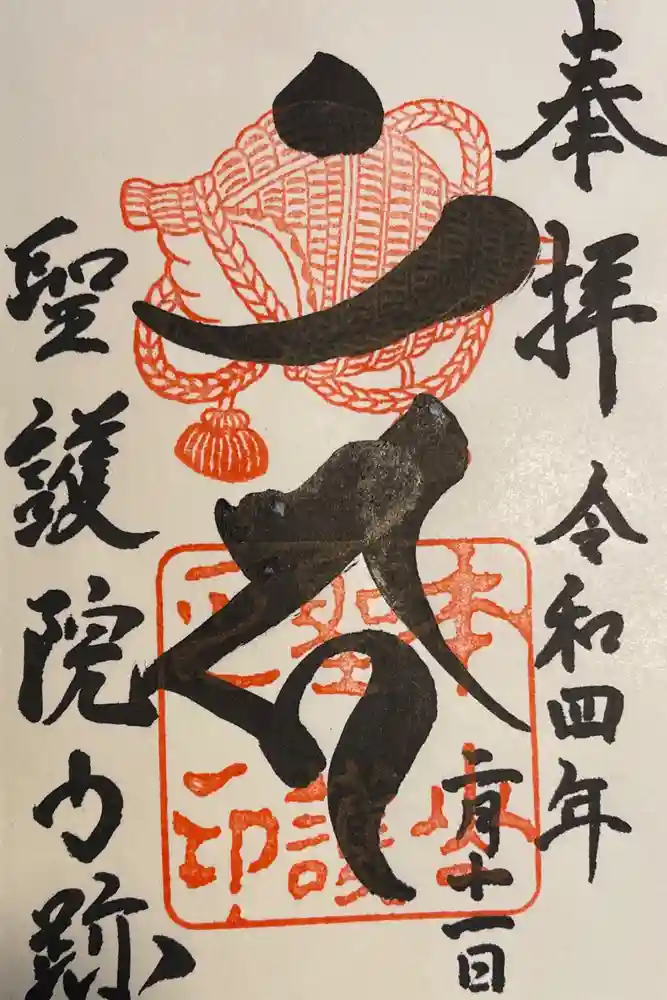 奉拝
令和四年
二月十一日
本山
聖護
聖護院門跡